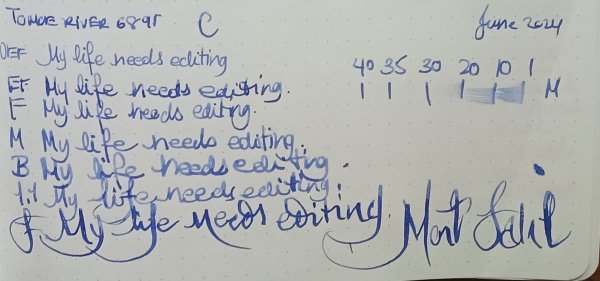 TOMOE RIVER 68gr C June 2024
OEF My life needs editing
40 35 30 20 10 1
EF My life needs editing. M
F My life needs editng.
M My life needs editing.
B My life needs editing.
1.1 My life needs editing.
f My life needs editing. Mort Sahl